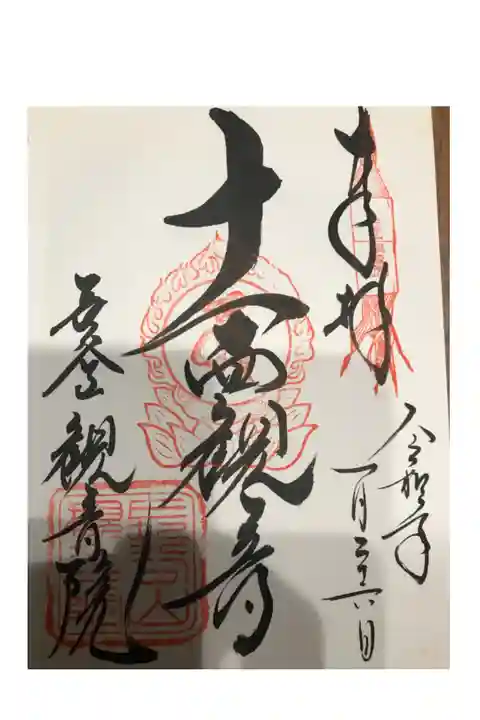 奉拝
令和年
一月二十六日
十一面観音
長谷山 観音院